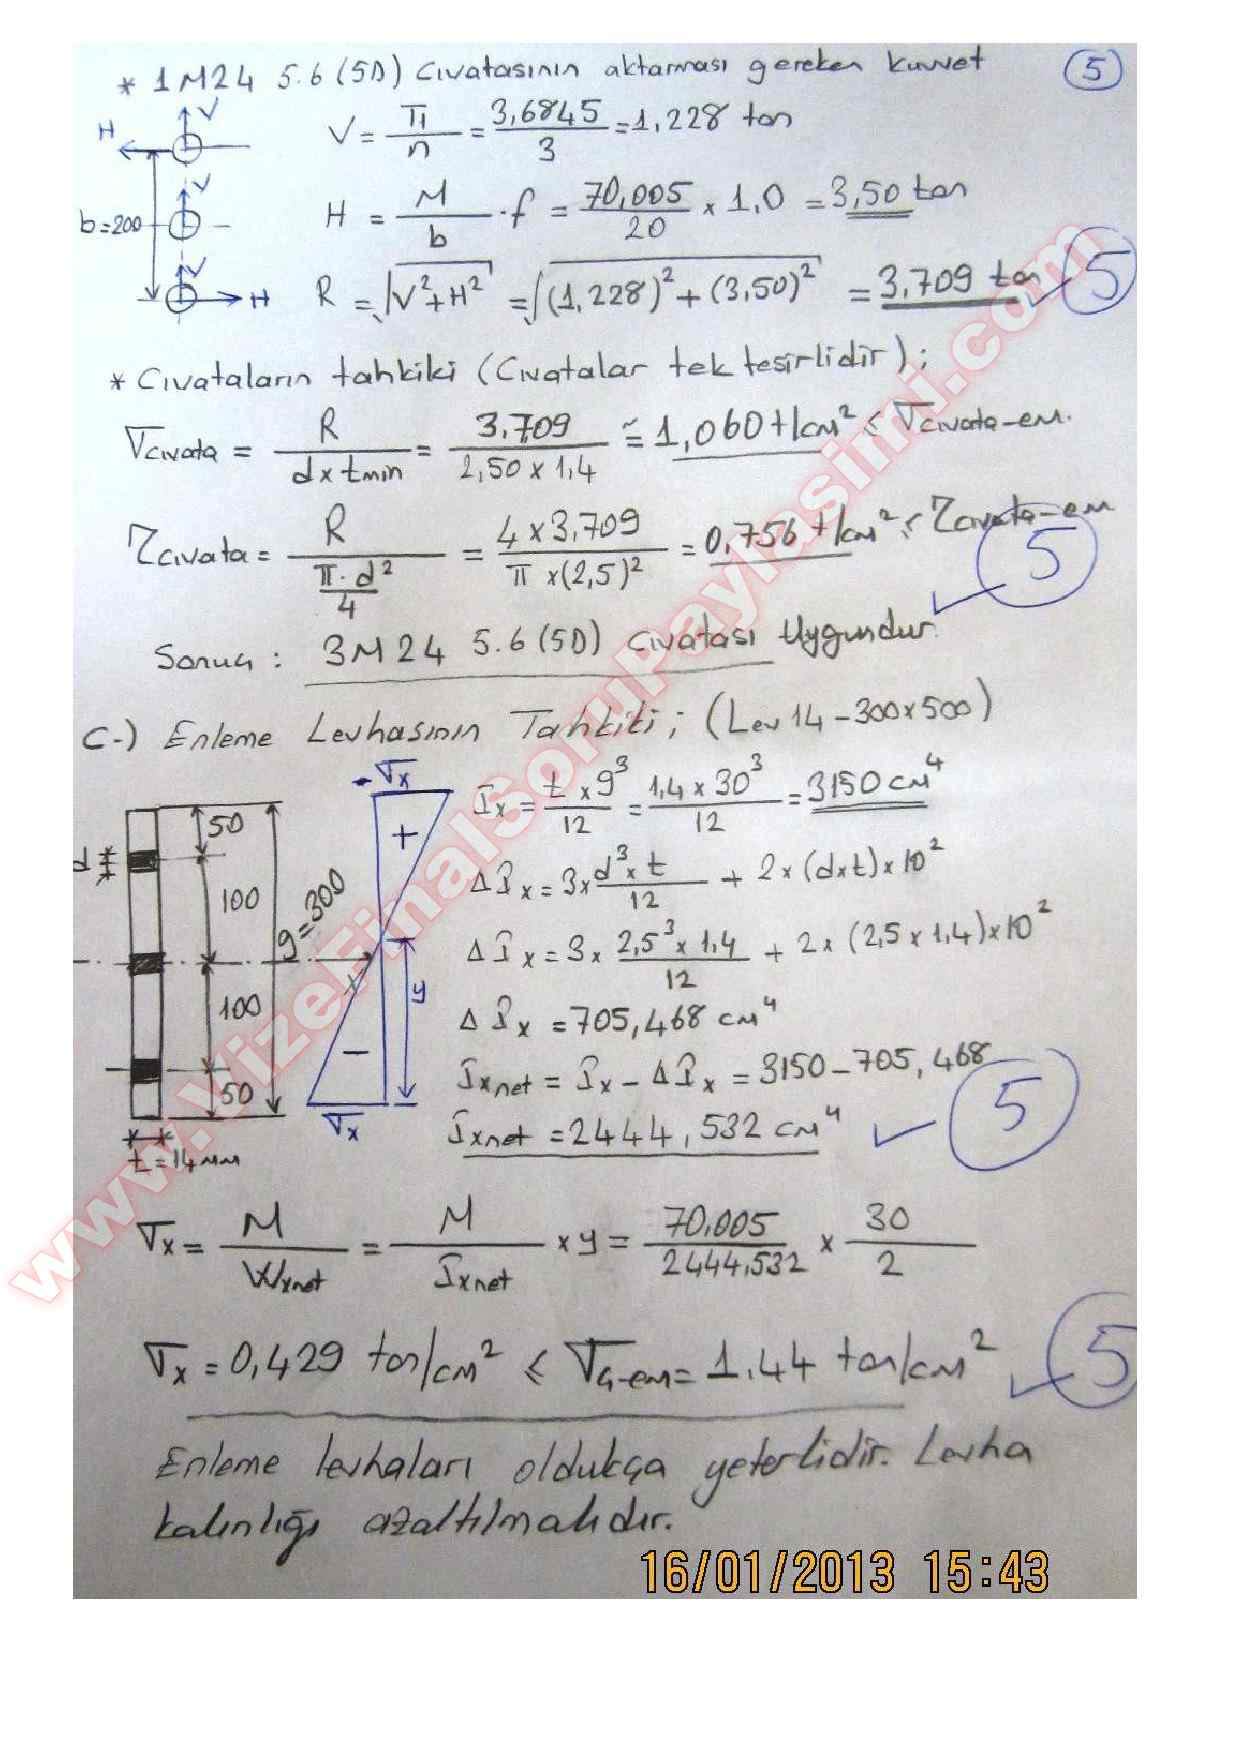 * 1M24 5.6 (5D) Cıvatasının aktarması gereken kuvvet (5)
V = T1/n = 3,6845/3 = 1,228 ton
H = M/b · f = 70,005/20 x 1,0 = 3,50 ton
R = √(V²+H²) = √((1,228)² + (3,50)²) = 3,709 ton ✓ 5
H V
V
b=200
V H
* Cıvataların tahkiki (Cıvatalar tek tesirlidir);
σcıvata = R/(d x tmin) = 3,709/(2,50 x 1,4) = 1,060 t/cm² ≤ σcıvata-em.
τcıvata = R/(π·d²/4) = 4 x 3,709/(π x (2,5)²) = 0,756 t/cm² ≤ τcıvata-em
5 ✓
Sonuç : 3M24 5.6 (5D) cıvatası uygundur.
C-) Enleme Levhasının Tahkiki; (Lev 14-300x500)
Ix = t x g³/12 = 1,4 x 30³/12 = 3150 cm⁴
ΔIx = 3 x d³ x t/12 + 2 x (d x t) x 10²
ΔIx = 3 x 2,5³ x 1,4/12 + 2 x (2,5 x 1,4) x 10²
ΔIx = 705,468 cm⁴
Ixnet = Ix - ΔIx = 3150 - 705,468
Ixnet = 2444,532 cm⁴ ✓ 5
d
50
100
100
50
g=300
t=14mm
-σx
+
y
-
σx
σx = M/Wxnet = M/Ixnet x y = 70,005/2444,532 x 30/2
σx = 0,429 ton/cm² ≤ σç-em = 1.44 ton/cm² ✓ 5
Enleme levhaları oldukça yeterlidir. Levha
kalınlığı azaltılmalıdır.
16/01/2013 15:43
www.VizeFinalSoruPaylasimi.com